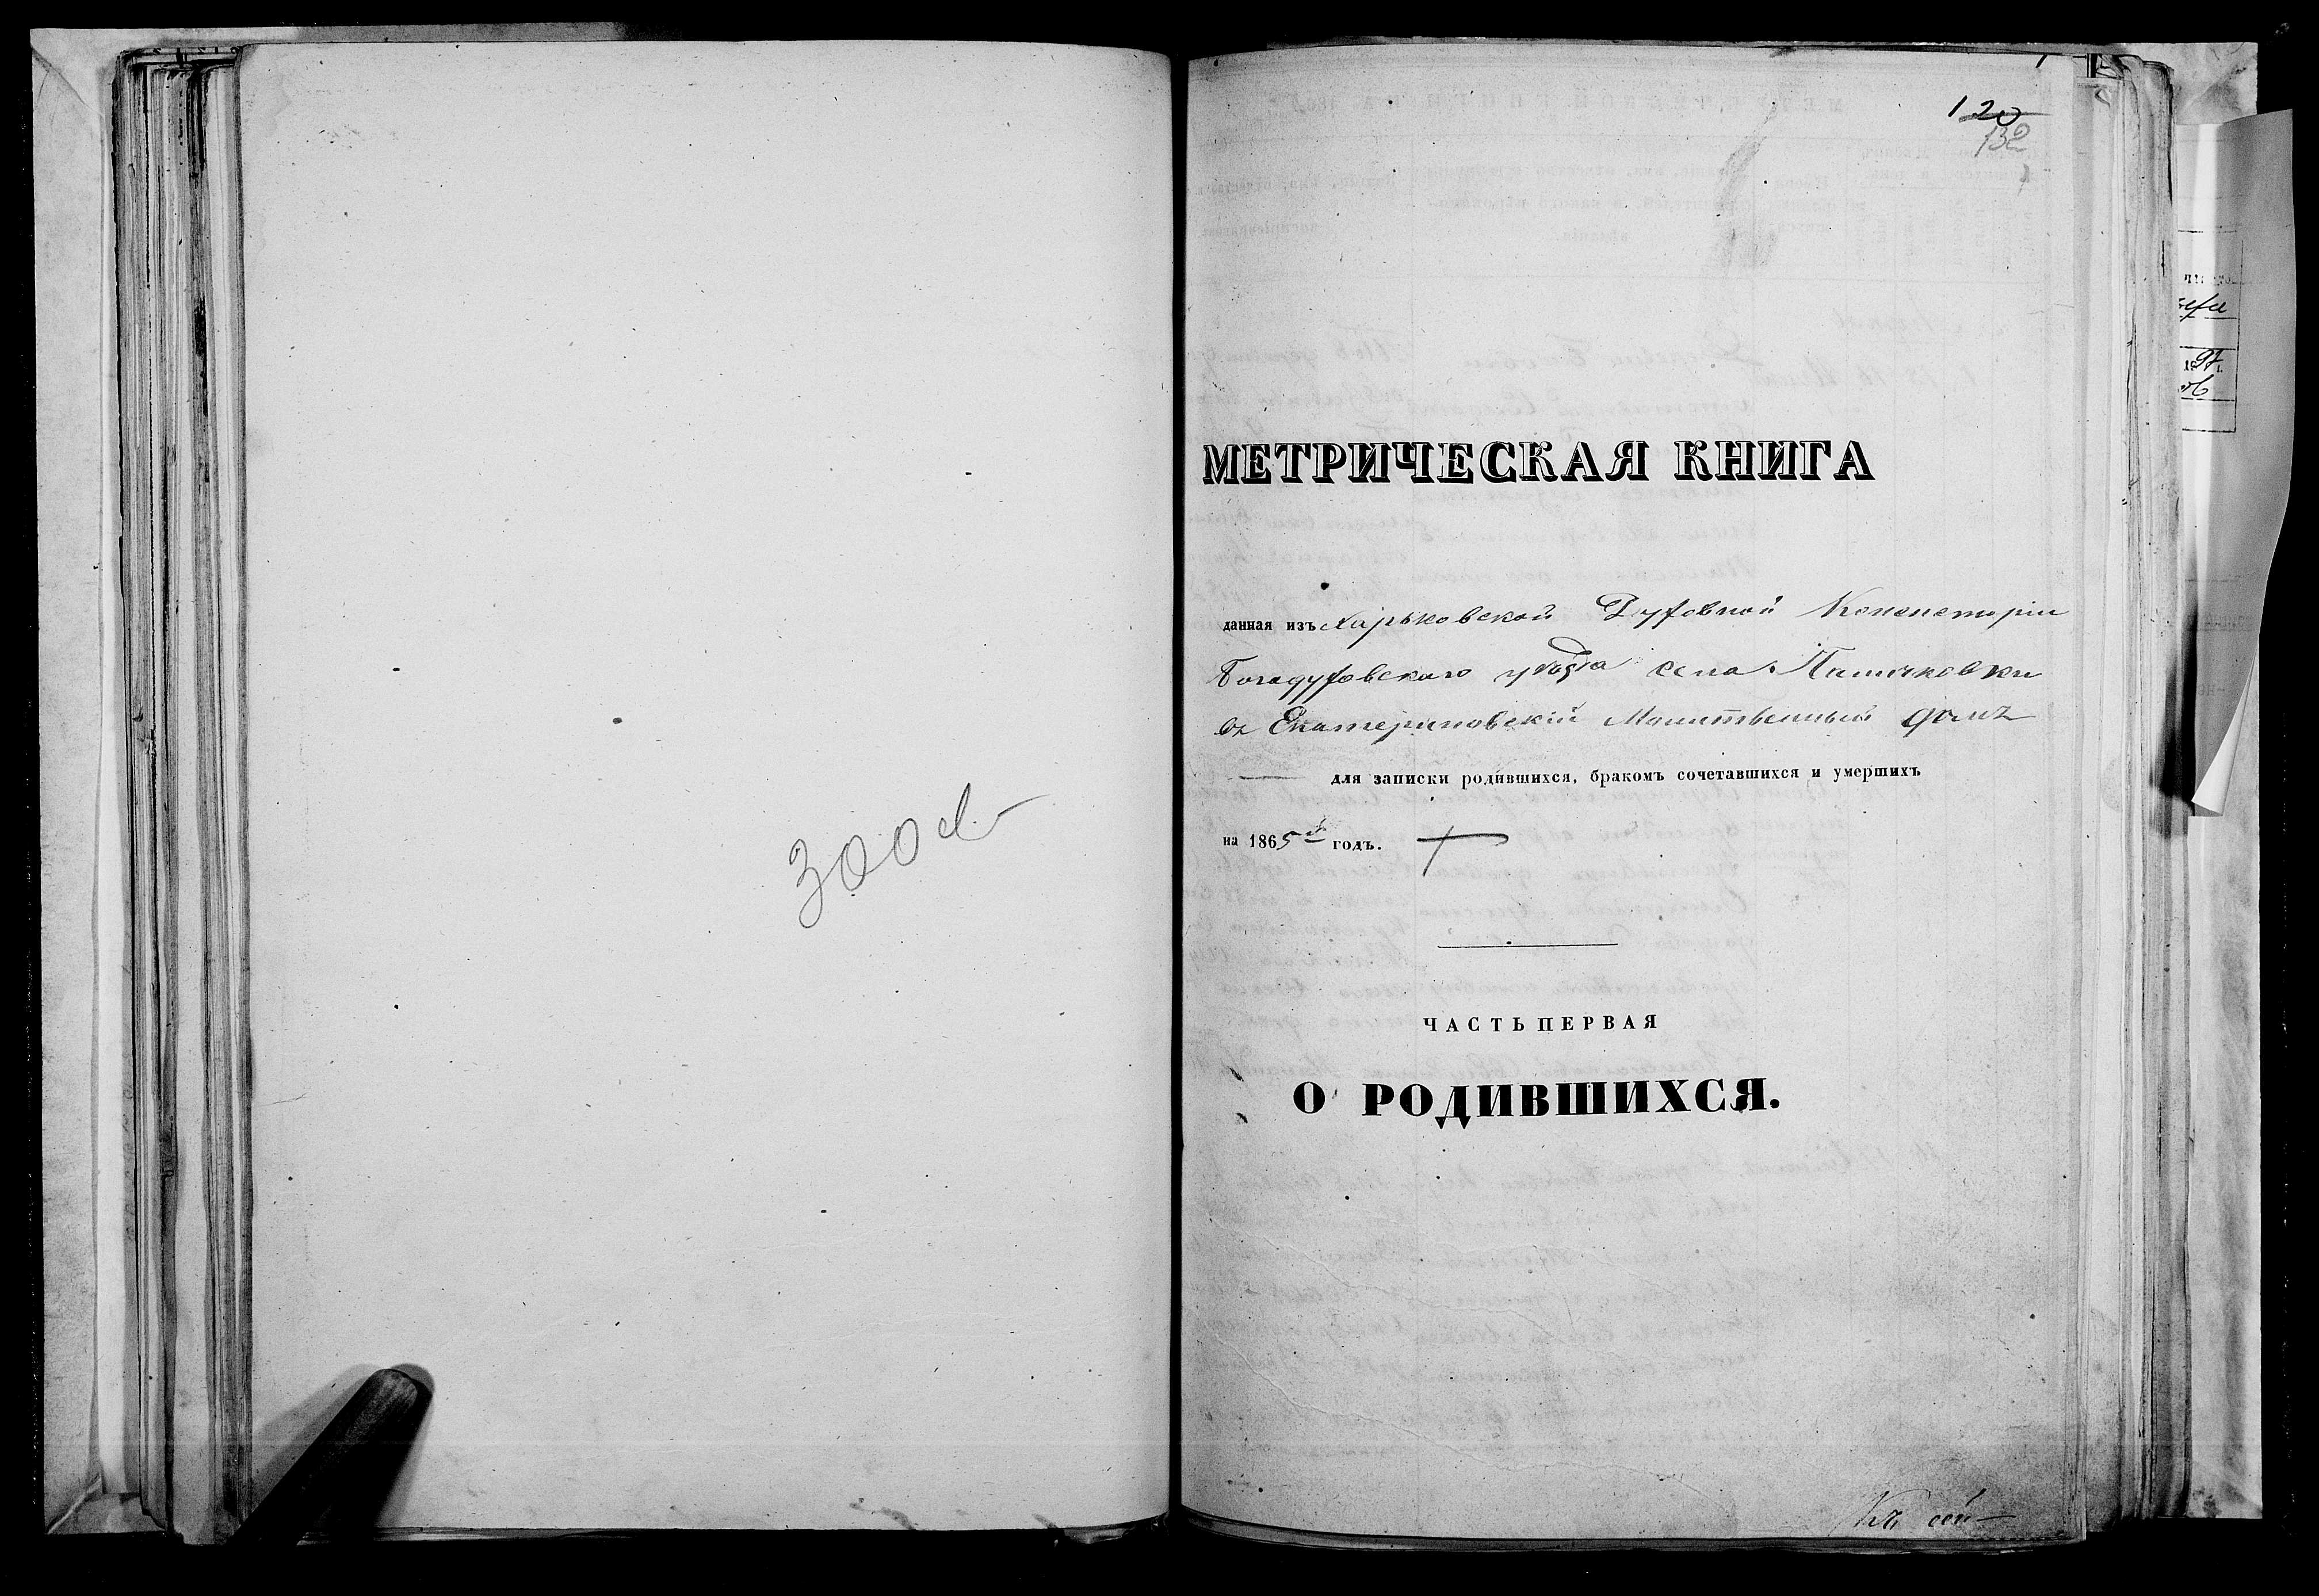 300 л.
120
132
МЕТРИЧЕСКАЯ КНИГА
данная изъ Харьковской Духовной Консисторіи
Богодуховскаго уѣзда села
въ Екатериновскій Молитвенный домъ
для записки родившихся, бракомъ сочетавшихся и умершихъ
на 1865й годъ.
ЧАСТЬ ПЕРВАЯ
О РОДИВШИХСЯ.
Къ сей